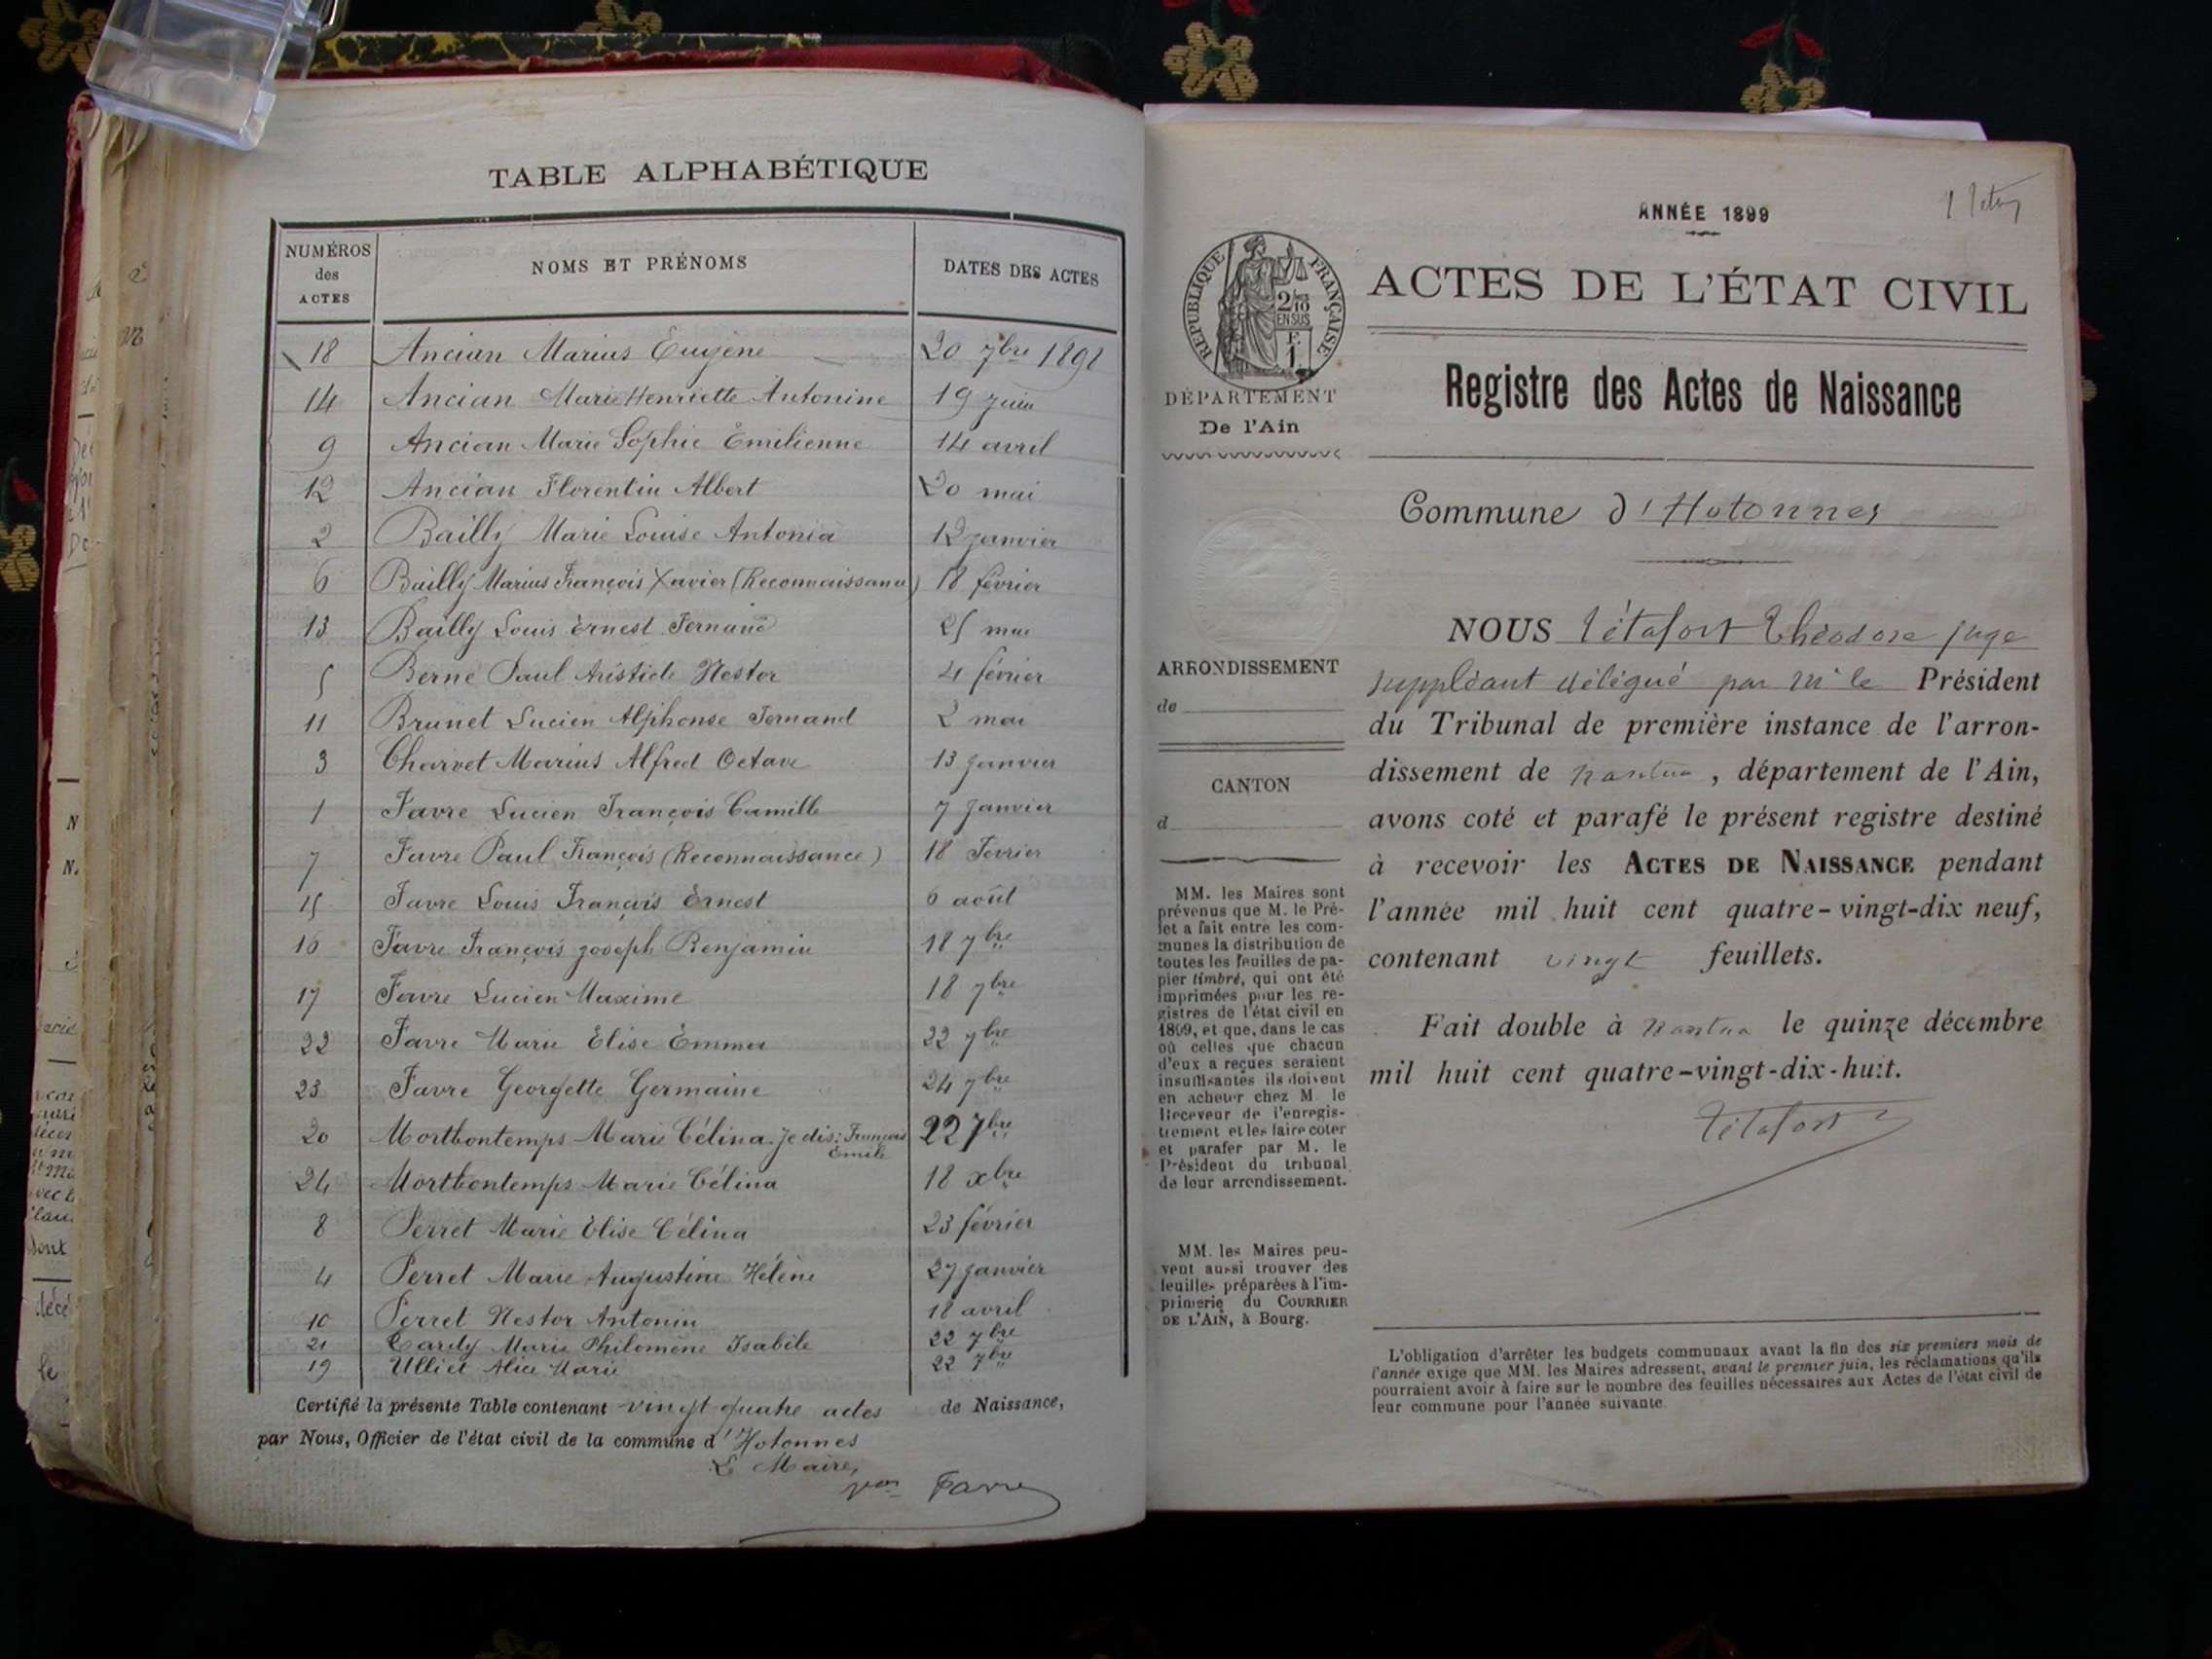 TABLE ALPHABÉTIQUE
NUMÉROS des ACTES NOMS ET PRÉNOMS DATES DES ACTES
18 Ancian Marius Eugène 20 7bre 1898
14 Ancian Marie Henriette Antonine 19 juin
9 Ancian Marie Sophie Emilienne 14 avril
12 Ancian Florentin Albert 20 mai
2 Bailly Marie Louise Antonia 12 janvier
6 Bailly Marius François Xavier (Reconnaissance) 18 février
13 Bailly Louis Ernest Fernand 25 mai
5 Berne Paul Aristide Nestor 4 février
11 Brunet Lucien Alphonse Fernand 2 mai
3 Charvet Marius Alfred Octave 13 janvier
1 Favre Lucien François Camille 7 janvier
7 Favre Paul François (Reconnaissance) 18 Fevrier
15 Favre Louis François Ernest 6 août
16 Favre François joseph Benjamin 18 7bre
17 Favre Lucien Maxime 18 7bre
22 Favre Marie Elise Emma 22 9bre
23 Favre Georgette Germaine 24 9bre
20 Mortbontemps Marie Célina. je dis: François Emile 22 7bre
24 Mortbontemps Marie Célina 18 xbre
8 Perret Marie Elise Célina 23 février
4 Perret Marie Augustine Hélène 27 janvier
10 Perret Nestor Antonin 18 avril
21 Tardy Marie Philomène Isabèle 22 7bre
19 Ulliet Alice Marie 22 7bre
Certifié la présente Table contenant vingt quatre actes de Naissance,
par Nous, Officier de l'état civil de la commune d'Hotonnes
Le Maire,
Favre
ANNÉE 1899
ACTES DE L'ÉTAT CIVIL
RÉPUBLIQUE FRANÇAISE
2/10
EN SUS
F.
1
DÉPARTEMENT
De l'Ain
Registre des Actes de Naissance
Commune d'Hotonnes
ARRONDISSEMENT
de
CANTON
d
MM. les Maires sont
prévenus que M. le Pré-
fet a fait entre les com-
munes la distribution de
toutes les feuilles de pa-
pier timbré, qui ont été
imprimées pour les re-
gistres de l'état civil en
1899, et que, dans le cas
où celles que chacun
d'eux a reçues seraient
insuffisantes ils doivent
en acheter chez M. le
Receveur de l'enregis-
trement et les faire coter
et parafer par M. le
Président du tribunal
de leur arrondissement.
MM. les Maires peu-
vent aussi trouver des
feuilles préparées à l'im-
primerie du COURRIER
DE L'AIN, à Bourg.
NOUS Tétafort Théodore juge
suppléant délégué par Mr le Président
du Tribunal de première instance de l'arron-
dissement de Nantua, département de l'Ain,
avons coté et parafé le présent registre destiné
à recevoir les ACTES DE NAISSANCE pendant
l'année mil huit cent quatre-vingt-dix neuf,
contenant vingt feuillets.
Fait double à Nantua le quinze décembre
mil huit cent quatre-vingt-dix-huit.
Tétafort
L'obligation d'arrêter les budgets communaux avant la fin des six premiers mois de
l'année exige que MM. les Maires adressent, avant le premier juin, les réclamations qu'ils
pourraient avoir à faire sur le nombre des feuilles nécessaires aux Actes de l'état civil de
leur commune pour l'année suivante